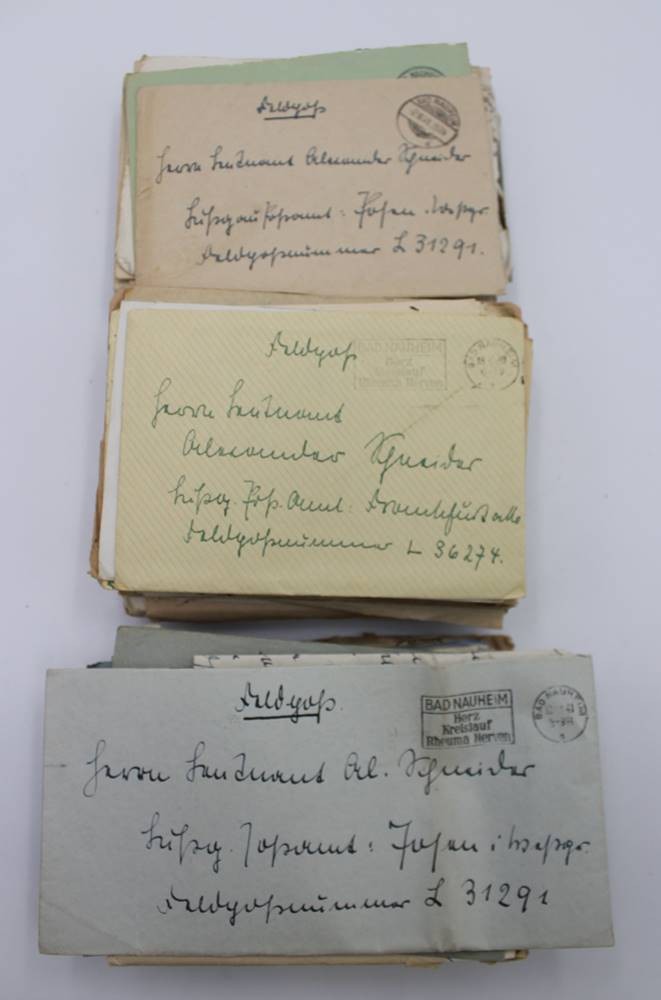 Feldpost
BAD NAUHEIM
Herrn Leutnant Alexander Schneider
Luftgaupostamt: Posen i. Westpr.
Feldpostnummer L 31291.
Feldpost
BAD NAUHEIM
Herz
Kreislauf
Rheuma Nerven
BAD NAUHEIM
Herrn Leutnant
Alexander Schneider
Luftg. Post. Amt: Frankfurt
Feldpostnummer L 36274.
Feldpost.
BAD NAUHEIM
Herz
Kreislauf
Rheuma Nerven
BAD NAUHEIM
Herrn Leutnant Al. Schneider
Luftg. Postamt: Posen i. Westpr.
Feldpostnummer L 31291